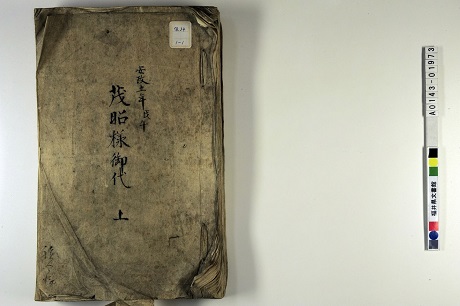 安政五年戊午
茂昭様御代
上
A0143-01973
福井県文書館